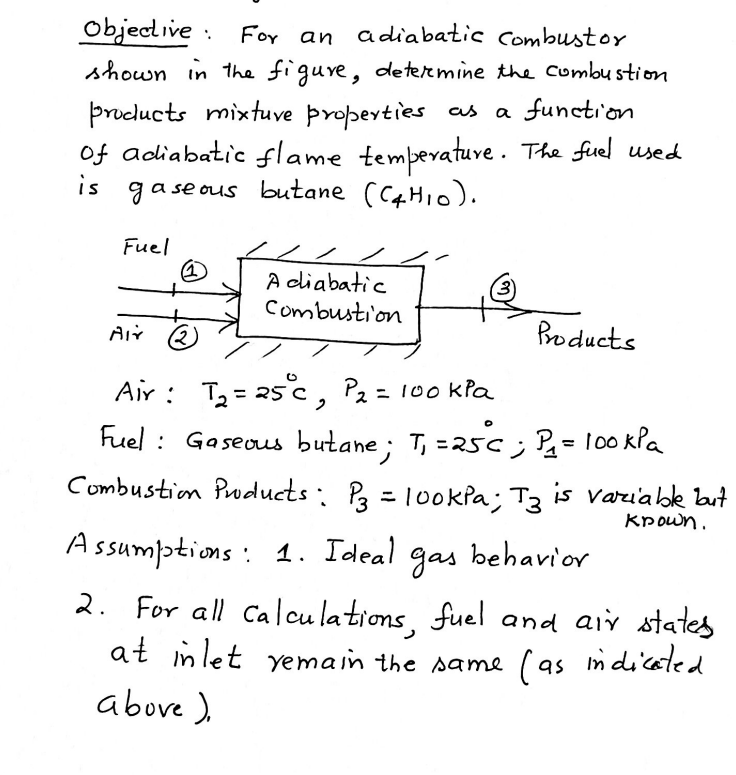 Objective : For an adiabatic combustor
shown in the figure, determine the combustion
products mixture properties as a function
of adiabatic flame temperature. The fuel used
is gaseous butane (C₄H₁₀).
Fuel
①
Adiabatic
Combustion
③
Air ②
Products
Air : T₂ = 25°C, P₂ = 100 kPa
Fuel : Gaseous butane; T₁ = 25°C ; P₁ = 100 kPa
Combustion Products : P₃ = 100kPa; T₃ is variable but
known.
Assumptions : 1. Ideal gas behavior
2. For all calculations, fuel and air states
at inlet remain the same (as indicated
above).